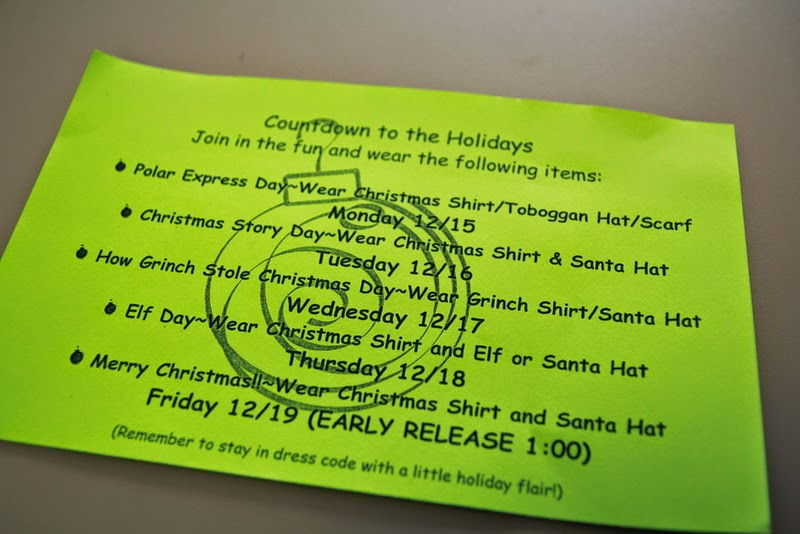 Countdown to the Holidays
Join in the fun and wear the following items:
Polar Express Day~Wear Christmas Shirt/Toboggan Hat/Scarf
Monday 12/15
Christmas Story Day~Wear Christmas Shirt & Santa Hat
Tuesday 12/16
How Grinch Stole Christmas Day~Wear Grinch Shirt/Santa Hat
Wednesday 12/17
Elf Day~Wear Christmas Shirt and Elf or Santa Hat
Thursday 12/18
Merry Christmas!!~Wear Christmas Shirt and Santa Hat
Friday 12/19 (EARLY RELEASE 1:00)
(Remember to stay in dress code with a little holiday flair!)